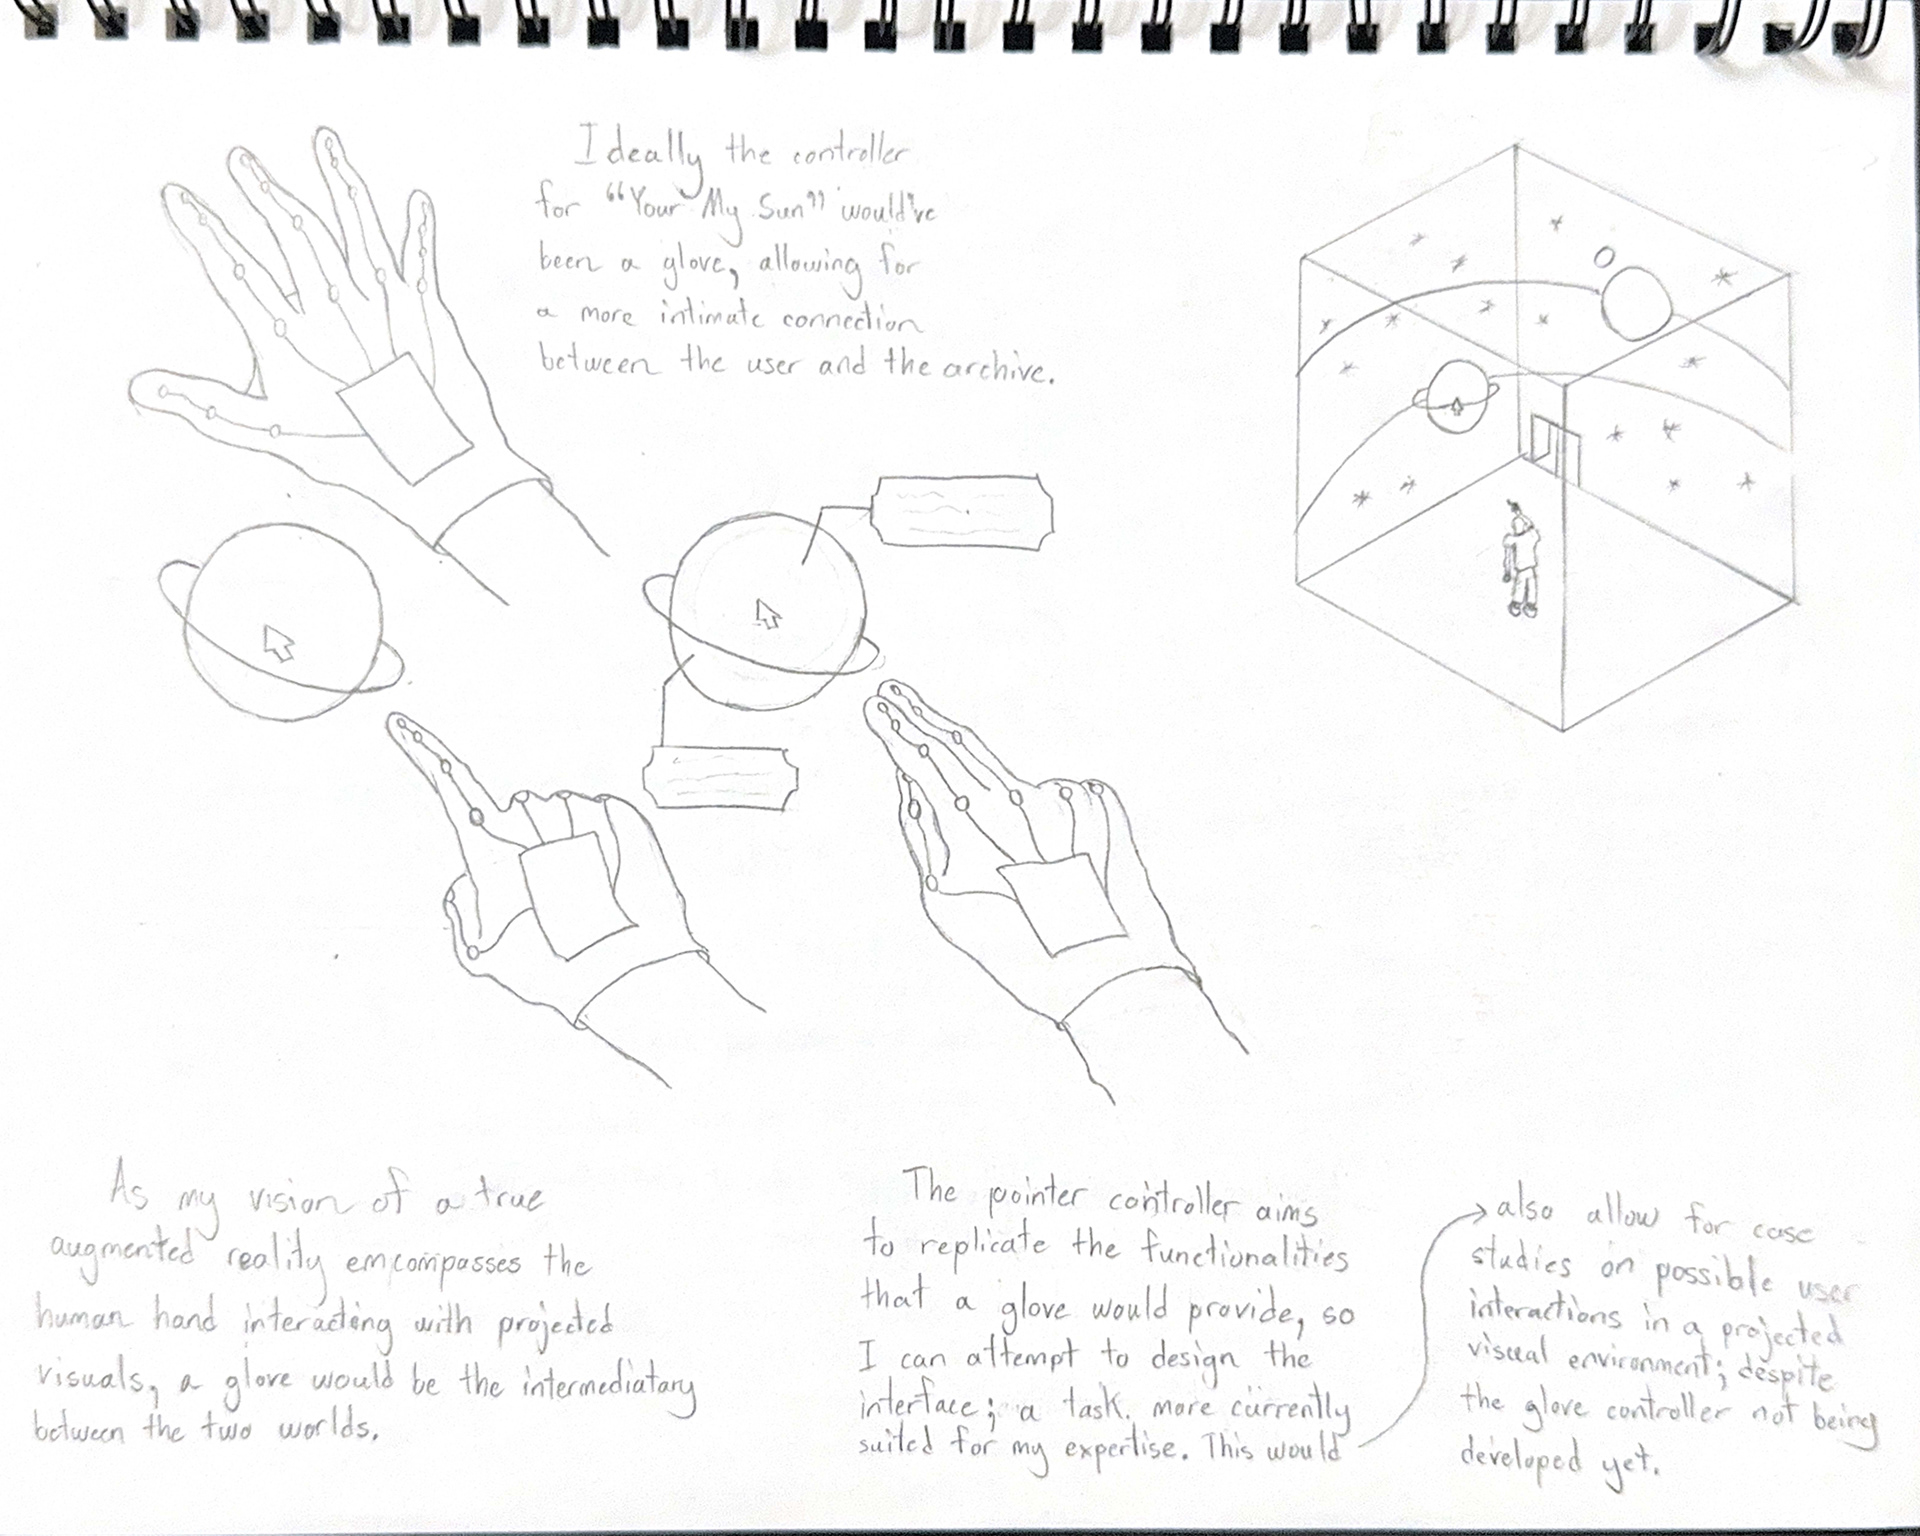 Ideally the controller
for "Your My Sun" would've
been a glove, allowing for
a more intimate connection
between the user and the archive.
As my vision of a true
augmented reality emcompasses the
human hand interacting with projected
visuals, a glove would be the intermediatary
between the two worlds.
The pointer controller aims
to replicate the functionalities
that a glove would provide, so
I can attempt to design the
interface; a task. more currently
suited for my expertise. This would
also allow for case
studies on possible user
interactions in a projected
visual environment; despite
the glove controller not being
developed yet.